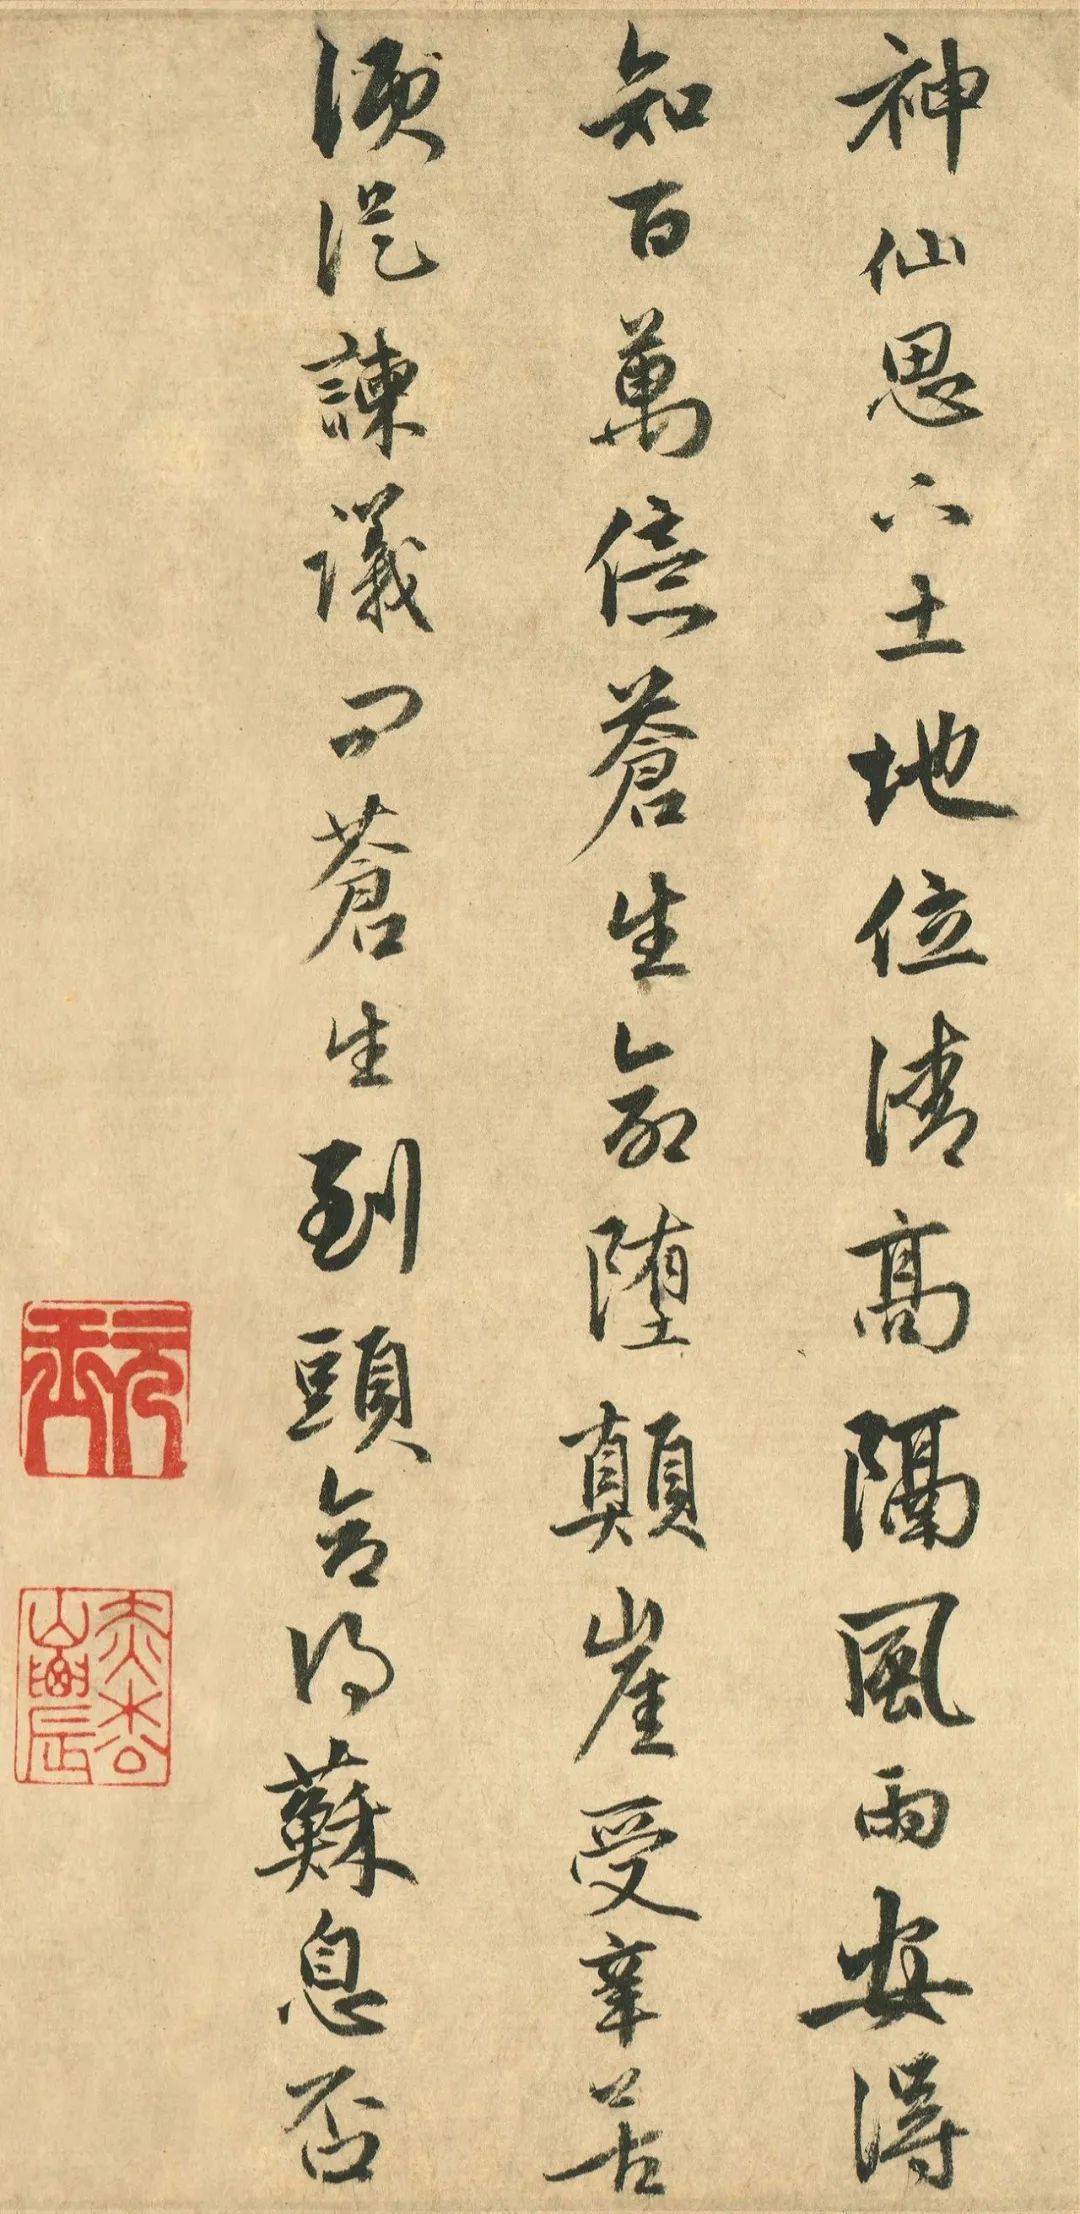 神仙思下土地位清高隔風雨安得
知百萬億蒼生命堕顛崖受辛苦
須從諫議問蒼生到頭合得蘇息否